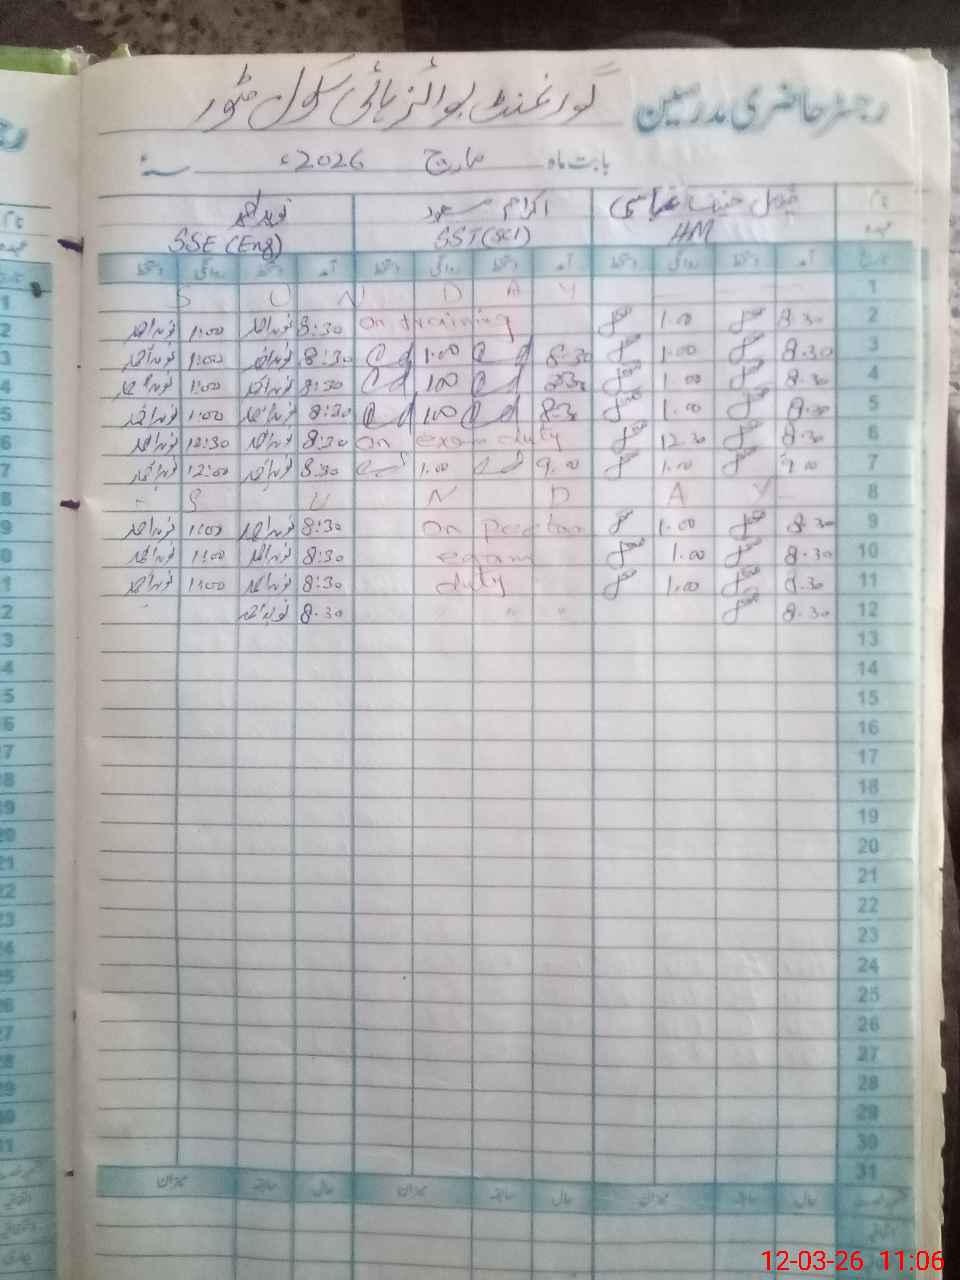 رجسٹر حاضری مدرسین گورنمنٹ بوائز ہائی سکول
بابت ماہ مارچ 2026ء
نام فیصل حنیف عباسی اکرام مسعود نوید احمد
عہدہ HM SST(SCI) SSE (Eng)
تاریخ آمد دستخط روانگی دستخط آمد دستخط روانگی دستخط آمد دستخط روانگی دستخط
1 S U N D A Y
2 8:30 1.00 on training 8:30 نوید احمد 1:00 نوید احمد
3 8.30 1.00 8.30 1.00 8:30 نوید احمد 1:00 نوید احمد
4 8.30 1.00 830 100 8:30 نوید احمد 1:00 نوید احمد
5 8.30 1.00 8.30 100 8:30 نوید احمد 1:00 نوید احمد
6 8.30 12.30 on exam duty 8:30 نوید احمد 12:30 نوید احمد
7 9.00 1.00 9.00 1.00 8:30 نوید احمد 12:00 نوید احمد
8 S U N D A Y
9 8.30 1.00 on 8:30 نوید احمد 1:00 نوید احمد
10 8.30 1.00 exam 8:30 نوید احمد 1:00 نوید احمد
11 8.30 1.00 duty 8:30 نوید احمد 1:00 نوید احمد
12 8.30 " " 8.30 نوید احمد
13
14
15
16
17
18
19
20
21
22
23
24
25
26
27
28
29
30
31
حال سابقہ میزان حال سابقہ میزان حال سابقہ میزان
12-03-26 11:06